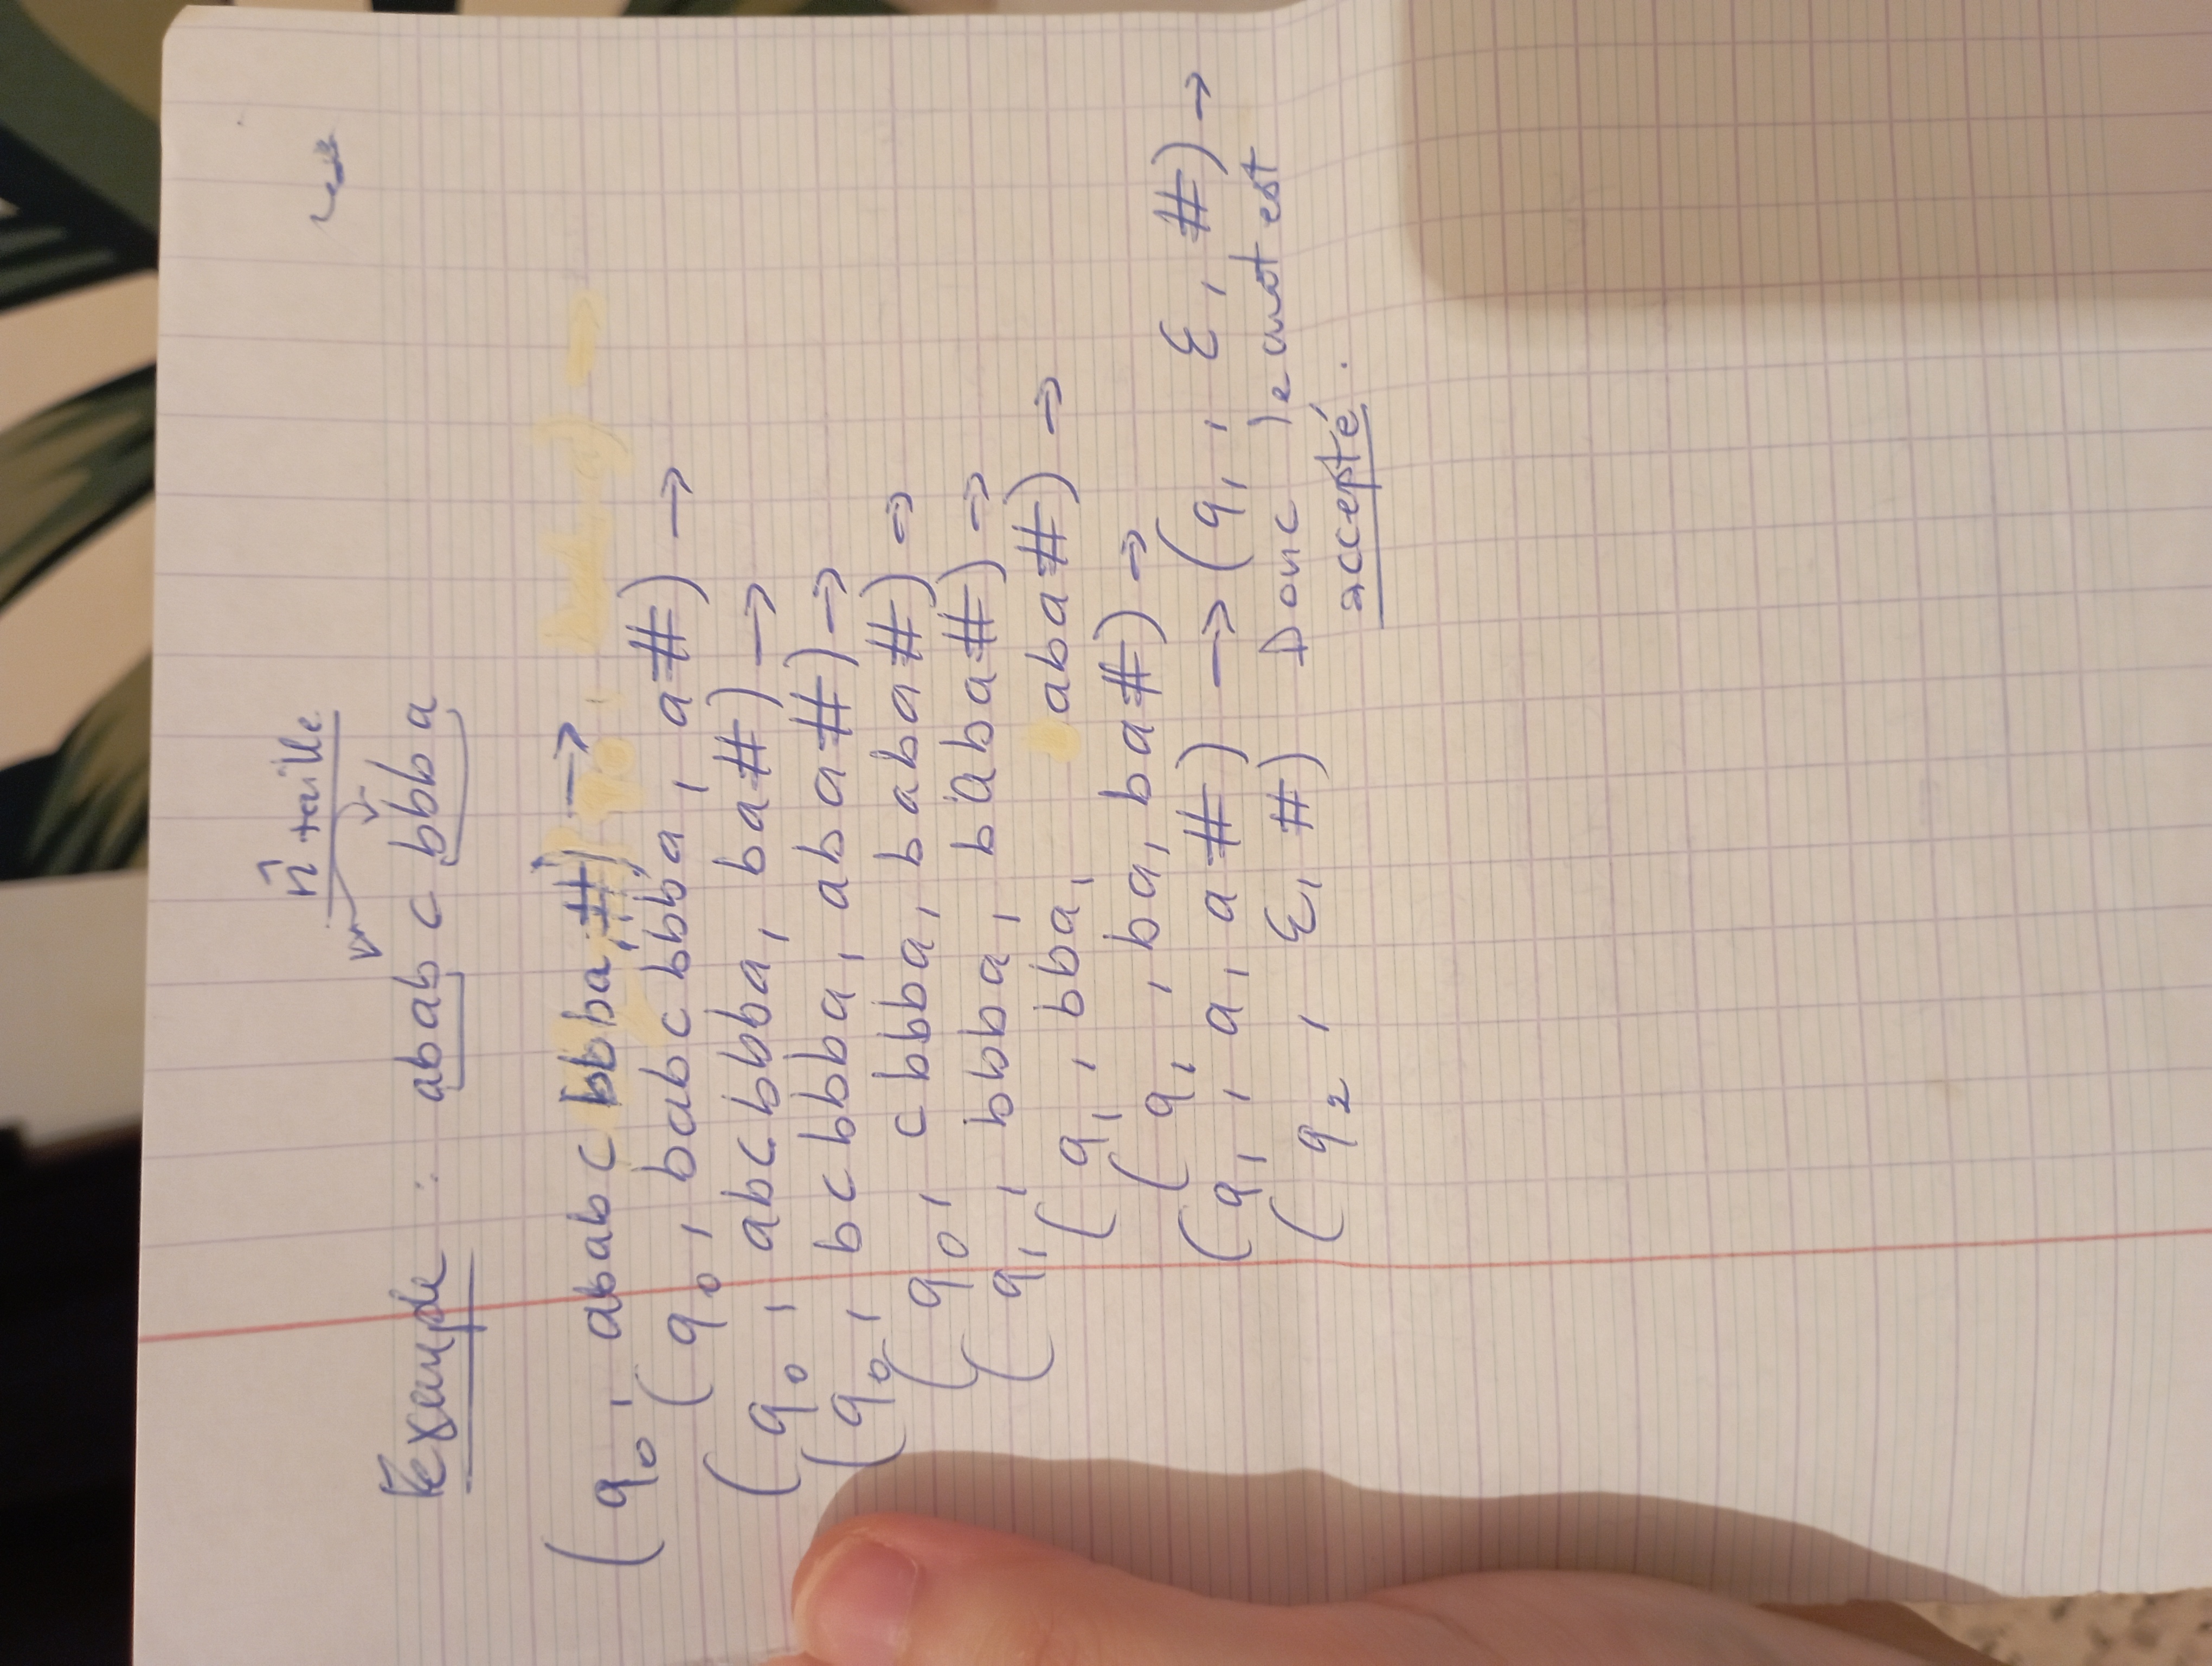 m̂ taille
Exemple : abab c bbb a
(q₀, ababcbbba, #) →
(q₀, babcbbba, a#) →
(q₀, abcbbba, ba#) →
(q₀, bcbbba, aba#) →
(q₀, cbbba, baba#) →
(q₁, bbba, baba#) →
(q₁, bba, aba#) →
(q₁, ba, ba#) →
(q₁, a, a#) → (q₁, ε, #) →
(q₂, ε, #) Donc le mot est
accepté.